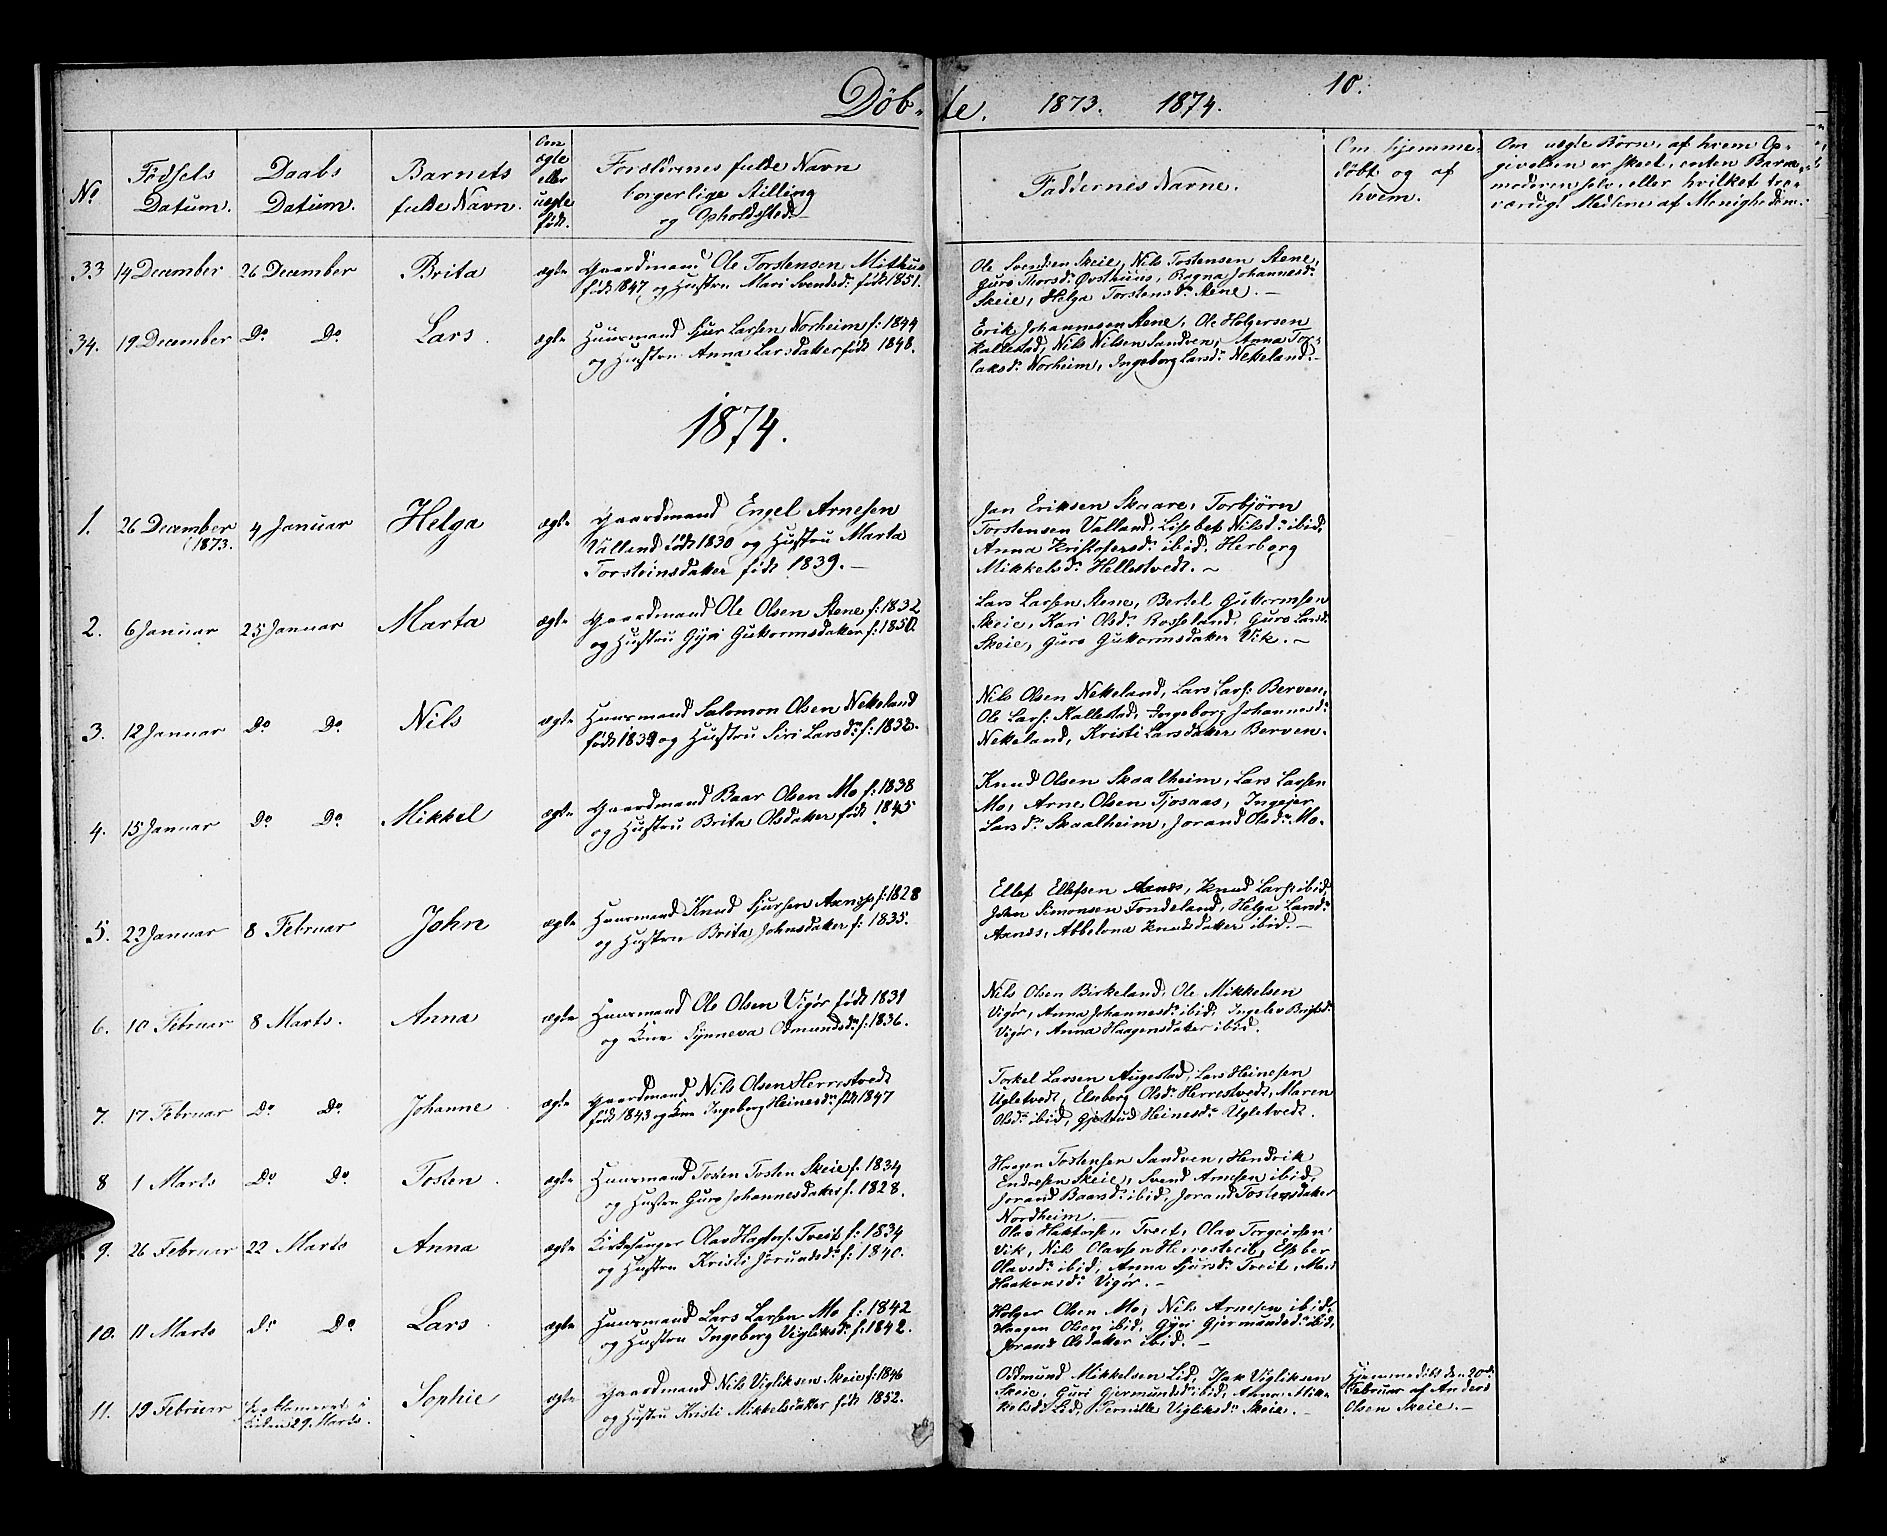 Döbte. 1873. 1874. 10.
No
Födsels
Datum.
Daabs
Datum.
Barnets
fulde Navn.
Om
ægte
eller
uegte
født.
Forældrenes fulde Navn
borgerlige Stilling
og Opholdssted
Faddernes Navne.
Om hjemme-
døbt og af
hvem.
Om uegte Børn, af hvem Op-
givelsen er skeet, enten Barne-
moderen selv, eller hvilket tro-
værdigt Medlem af Menigheden.
33 14 December 26 December Brita ægte Gaardmand Ole Torstensen Mithus
født 1847 og Hustru Mari Svendsd. født 1851.
Ole Svendsen Skeie, Nils Tostensen Stene,
Guro Thorsd. Øvsthuus, Ragna Johannesd.
Skeie, Helga Torstensd. Stene. —
34. 19 December Do Do Lars ægte Huusmand Sjur Larsen Norheim f: 1844
og Hustru Anna Larsdatter født 1848.
Erik Johannesen Stene, Ole Holgersen
Kallestad, Nils Nilsen Sandven, Anna Tor-
laksd. Norheim, Ingeborg Larsd. Netteland. —
1874.
1. 26 December 4 Januar Helga ægte Gaardmand Engel Arnesen
(1873.
Valland født 1830 og Hustru Marta
Torsteinsdatter født 1839. —
Jan Eriksen Skaare, Torbjörn
Torstensen Valland, Lisbet Nilsd. ibid,
Anna Kristofersd. ibid. Herborg
Mikkelsd. Hellestvedt. —
2. 6 Januar 25 Januar Marta ægte Gaardmand Ole Olsen Stene f: 1832
og Hustru Gyri Guttormsdatter f: 1850.
Lars Larsen Stene, Bertel Guttormsen
Skeie, Kari Olsd. Rosseland, Guro Larsd.
Skeie, Guro Guttormsdatter Vik. —
3. 12 Januar Do Do Nils ægte Huusmand Salomon Olsen Netteland
født 1839 og Hustru Siri Larsd. f: 1838.
Nils Olsen Netteland, Lars Lars: Berven,
Ole Lars: Kallestad, Ingeborg Johannesd.
Netteland, Kristi Larsdatter Berven.
4. 15 Januar Do Do Mikkel ægte Gaardmand Baar Olsen Mo f: 1838
og Hustru Brita Olsdatter født 1845
Knud Olsen Skaalheim, Lars Larsen
Mo, Arne Olsen Tjosaas, Ingejer
Larsd. Skaalheim, Jorand Olsd. Mo.
5. 22 Januar 8 Februar John ægte Huusmand Knud Sjursen Aanæs f: 1828
og Hustru Brita Johnsdatter f: 1835.
Ellef Ellefsen Aanæs, Knud Lars: ibid
John Simonsen Fondeland, Helga Larsd.
Aanæs, Abbelona Knutsdatter ibid. —
6. 10 Februar 8 Marts. Anna ægte Huusmand Ole Olsen Vigør født 1831
og Kone Synneva Odmundsd. f: 1836.
Nils Olsen Birkeland, Ole Mikkelsen
Vigør, Anna Johannesd. ibid, Ingelev Brigtsd.
Vigør, Anna Haagensdatter ibid.
7. 17 Februar Do Do Johanne ægte Gaardmand Nils Olsen Herrestvedt
født 1843 og Kone Ingeborg Heinesd. født 1847
Torkel Larsen Augestad, Lars Heinesen
Ugletvedt, Elseborg Olsd. Herrestvedt, Maren
Olsd. ibid, Gjertrud Heinesd. Ugletvedt.
8 1 Marts Do Do Tosten ægte Huusmand Tosten Tosten Skeie f: 1834
og Hustru Guro Johannesdatter f: 1828.
Haagen Tostensen Sandven, Hendrik
Endresen Skeie, Svend Arnesen ibid,
Jorand Baarsd. ibid, Jorand Tostensdatter
Nordheim. —
9. 26 Februar 22 Marts Anna ægte Kirkesanger Olav Hagtors. Tveit f: 1834
og Hustru Kristi Jørundsd. f: 1840.
Olav Haktorsen Tveit, Olav Torgeirsen
Vik, Nils Olavsen Herrestveit, Elsber
Olavsd. ibid, Anna Sjursd. Tveit,
Haakonsd. Vigør. —
10. 11 Marts Do Do Lars ægte Huusmand Lars Larsen Mo f: 1842
og Hustru Ingeborg Vigliksd. f: 1842.
Holger Olsen Mo, Nils Arnesen ibid,
Haagen Olsen ibid, Gyri Gjermundsd. ibid,
Jorand Olsdatter ibid. —
11. 19 Februar i Kirken 29. Marts. Sophie ægte Gaardmand Nils Vigliksen Skeie f: 1846
og Hustru Kristi Mikkelsdatter født 1852.
Oddmund Mikkelsen Lid, Isak Vigliksen
Skeie, Guri Gjermundsd. ibid, Anna Mik-
kelsd. Lid, Pernille Vigliksd. Skeie. —
Hjemmedøbt den 20de
Februar af Anders
Olsen Skeie. —